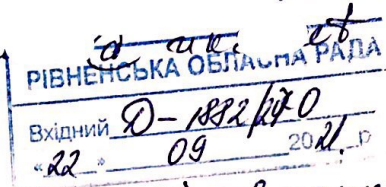 РІВНЕНСЬКА ОБЛАСНА РАДА
Вхідний Д-1882/
"22" 09 2021 р